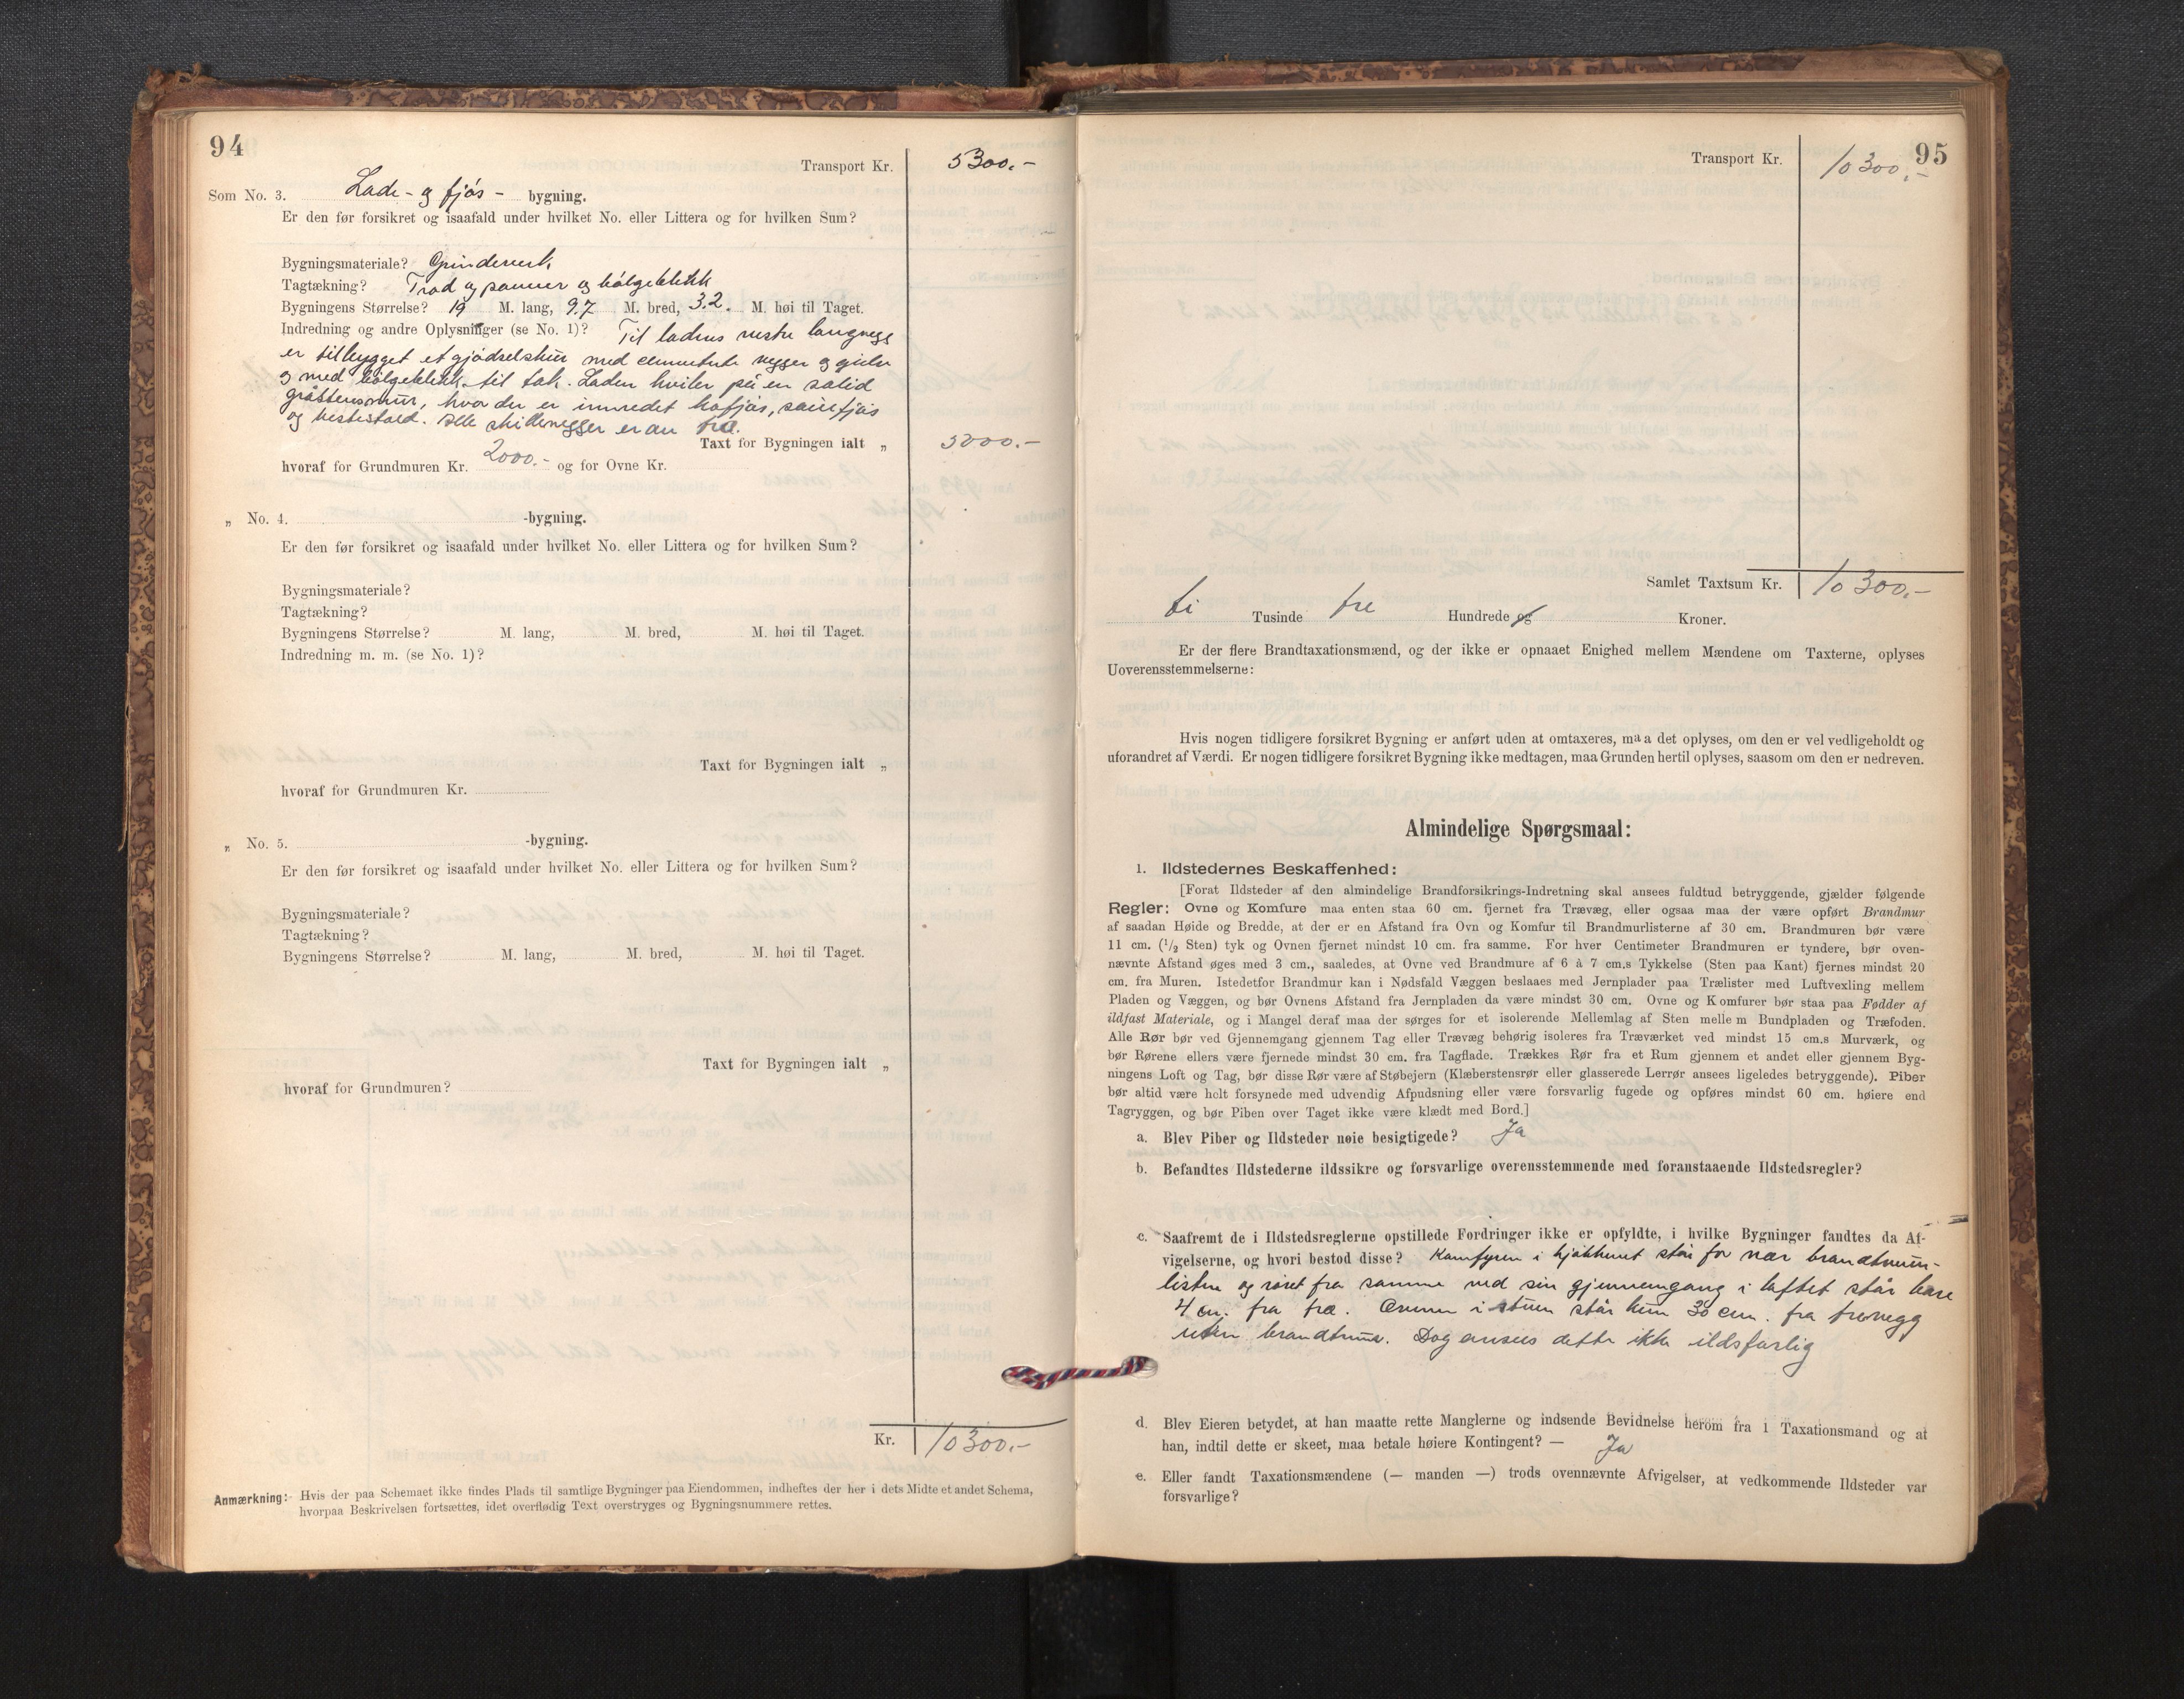 94
Transport Kr. 5300.-
Som No. 3. Lade- og fjøs- bygning.
Er den før forsikret og isaafald under hvilket No. eller Littera og for hvilken Sum?
Bygningsmateriale? Grindverk
Tagtækning? Trod og panner og bølgeblekk
Bygningens Størrelse? 19 M. lang, 9.7 M. bred, 3.2. M. høi til Taget.
Indredning og andre Oplysninger (se No. 1)? Til ladens vestre langvegg
er tilbygget et gjødselshus med cementerte vegger og
og med bølgeblekk til tak. Laden hviler på en solid
gråstensmur, hvor der er innredet kofjøs, sauefjøs
og hestestald. Alle skillevegger er av tre.
Taxt for Bygningen ialt „ 5000.-
hvoraf for Grundmuren Kr. 2000.- og for Ovne Kr.
„ No. 4. -bygning.
Er den før forsikret og isaafald under hvilket No. eller Littera og for hvilken Sum?
Bygningsmateriale?
Tagtækning?
Bygningens Størrelse? M. lang, M. bred, M. høi til Taget.
Indredning m. m. (se No. 1)?
Taxt for Bygningen ialt „
hvoraf for Grundmuren Kr.
„ No. 5. -bygning.
Er den før forsikret og isaafald under hvilket No. eller Littera og for hvilken Sum?
Bygningsmateriale?
Tagtækning?
Bygningens Størrelse? M. lang, M. bred, M. høi til Taget.
Taxt for Bygningen ialt „
hvoraf for Grundmuren?
Kr. 10300.-
Anmærkning: Hvis der paa Schemaet ikke findes Plads til samtlige Bygninger paa Eiendommen, indheftes der her i dets Midte et andet Schema,
hvorpaa Beskrivelsen fortsættes, idet overflødig Text overstryges og Bygningsnummere rettes.
95
Transport Kr. 10300.-
Samlet Taxtsum Kr. 10300.-
ti Tusinde tre Hundrede og Kroner.
Er der flere Brandtaxationsmænd, og der ikke er opnaaet Enighed mellem Mændene om Taxterne, oplyses
Uoverensstemmelserne:
Hvis nogen tidligere forsikret Bygning er anført uden at omtaxeres, maa det oplyses, om den er vel vedligeholdt og
uforandret af Værdi. Er nogen tidligere forsikret Bygning ikke medtagen, maa Grunden hertil oplyses, saasom om den er nedreven.
Almindelige Spørgsmaal:
1. Ildstedernes Beskaffenhed:
[Forat Ildsteder af den almindelige Brandforsikrings-Indretning skal ansees fuldtud betryggende, gjælder følgende
Regler: Ovne og Komfure maa enten staa 60 cm. fjernet fra Trævæg, eller ogsaa maa der være opført Brandmur
af saadan Høide og Bredde, at der er en Afstand fra Ovn og Komfur til Brandmurlisterne af 30 cm. Brandmuren bør være
11 cm. (1/2 Sten) tyk og Ovnen fjernet mindst 10 cm. fra samme. For hver Centimeter Brandmuren er tyndere, bør oven-
nævnte Afstand øges med 3 cm., saaledes, at Ovne ved Brandmure af 6 à 7 cm.s Tykkelse (Sten paa Kant) fjernes mindst 20
cm. fra Muren. Istedetfor Brandmur kan i Nødsfald Væggen beslaaes med Jernplader paa Trælister med Luftvexling mellem
Pladen og Væggen, og bør Ovnens Afstand fra Jernpladen da være mindst 30 cm. Ovne og Komfurer bør staa paa Fødder af
ildfast Materiale, og i Mangel deraf maa der sørges for et isolerende Mellemlag af Sten mellem Bundpladen og Træfoden.
Alle Rør bør ved Gjennemgang gjennem Tag eller Trævæg behørig isoleres fra Træværket ved mindst 15 cm.s Murværk, og
bør Rørene ellers være fjernede mindst 30 cm. fra Tagflade. Trækkes Rør fra et Rum gjennem et andet eller gjennem Byg-
ningens Loft og Tag, bør disse Rør være af Støbejern (Klæberstensrør eller glasserede Lerrør ansees ligeledes betryggende). Piber
bør altid være helt forsynede med udvendig Afpudsning eller være forsvarlig fugede og opføres mindst 60 cm. høiere end
Tagryggen, og bør Piben over Taget ikke være klædt med Bord.]
a. Blev Piber og Ildsteder nøie besigtigede? Ja
b. Befandtes Ildstederne ildssikre og forsvarlige overensstemmende med foranstaaende Ildstedsregler?
c. Saafremt de i Ildstedsreglerne opstillede Fordringer ikke er opfyldte, i hvilke Bygninger fandtes da Af-
vigelserne, og hvori bestod disse? Komfyren i kjøkkenet står for nær brandmur-
listen og røret fra samme ved sin gjennemgang i loftet står bare
4 cm. fra tre. Ovnen i stuen står kun 30 cm. fra trevegg
uten brandmur. Dog ansees dette ikke ildsfarlig
d. Blev Eieren betydet, at han maatte rette Manglerne og indsende Bevidnelse herom fra 1 Taxationsmand og at
han, indtil dette er skeet, maa betale høiere Kontingent? — Ja
e. Eller fandt Taxationsmændene (— manden —) trods ovennævnte Afvigelser, at vedkommende Ildsteder var
forsvarlige?